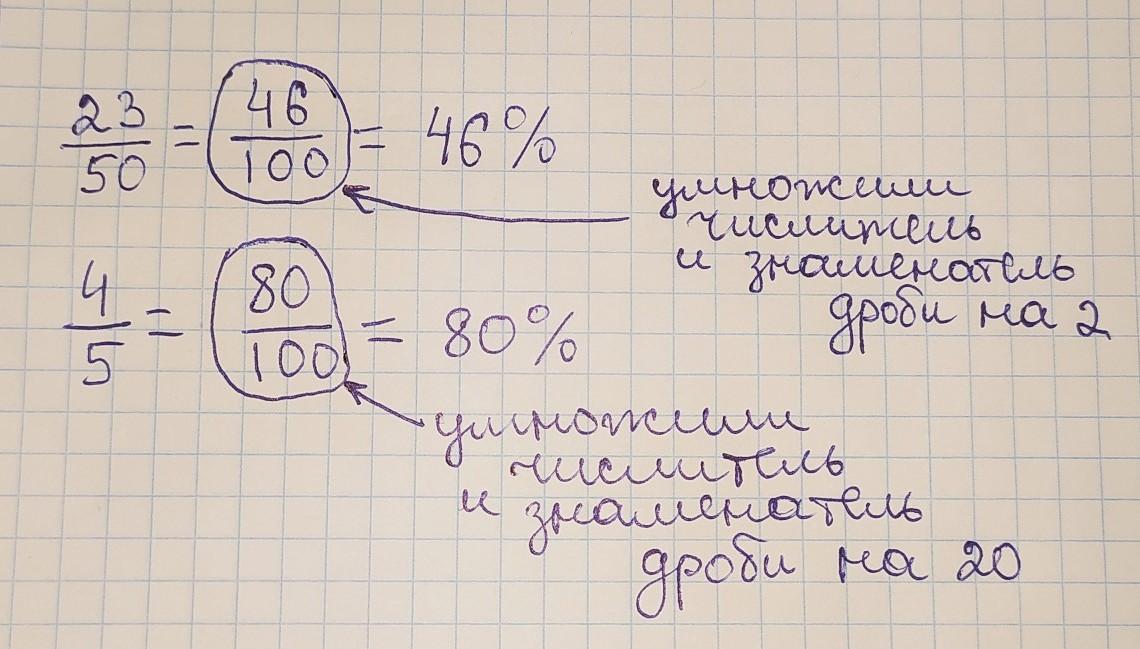 23/50 = 46/100 = 46%
умножили
числитель
и знаменатель
дроби на 2
4/5 = 80/100 = 80%
умножили
числитель
и знаменатель
дроби на 20